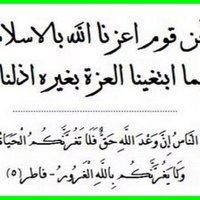 قوم اعزنا الله بالاسلا
ما ابتغينا العزة بغيره اذلنا
النَّاسُ إِنَّ وَعْدَ اللَّهِ حَقٌّ فَلَا تَغُرَّنَّكُمُ الْحَيَاةُ
وَلَا يَغُرَّنَّكُم بِاللَّهِ الْغَرُورُ - فاطر (٥)